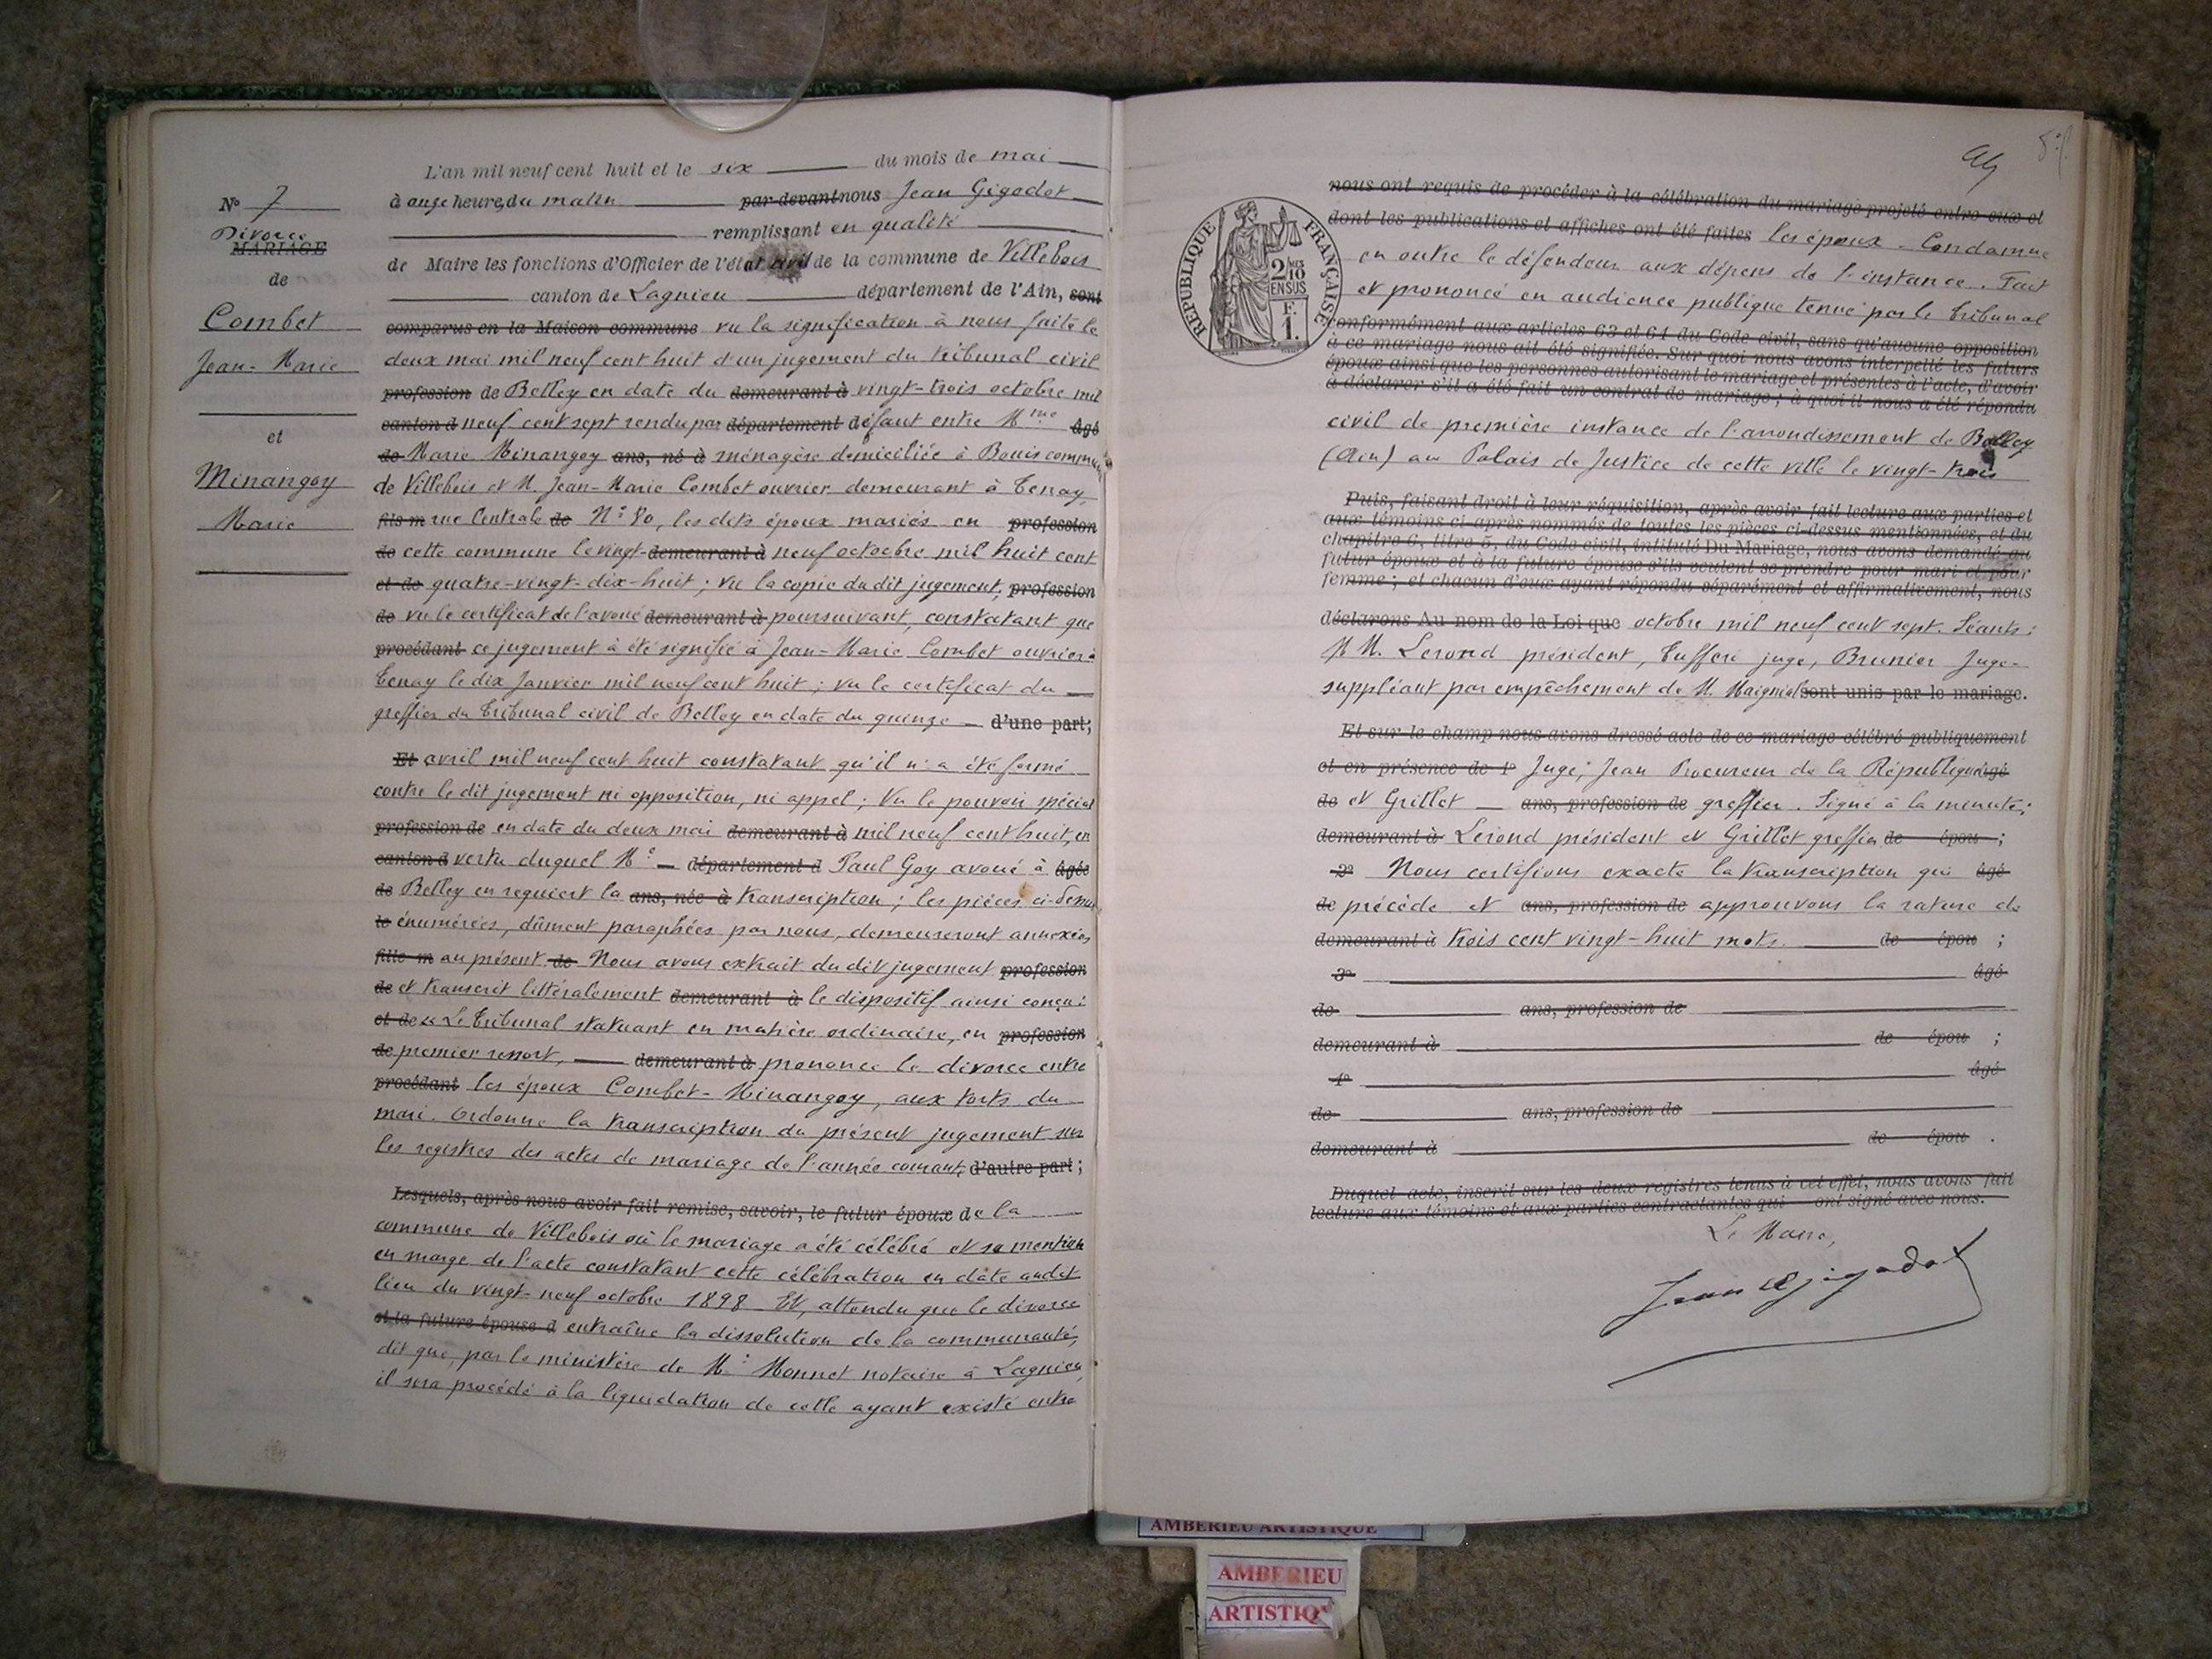 L'an mil neuf cent huit et le six du mois de mai
N° 7
à onze heures du matin par devant nous Jean Gigodot
Divorce
MARIAGE
remplissant en qualité
de Maire les fonctions d'Officier de l'état civil de la commune de Villebois
de
canton de Lagnieu département de l'Ain, sont
Combet
comparus en la Maison commune vu la signification à nous faite le
Jean-Marie
deux mai mil neuf cent huit d'un jugement du tribunal civil
profession de Belley en date du demeurant à vingt-trois octobre mil
canton d neuf cent sept rendu par département défaut entre Mme âgé
et
de Marie Minangoy ans, né à ménagère domiciliée à Bouis commune
Minangoy
de Villebois et M. Jean-Marie Combet ouvrier demeurant à Tenay
Marie
fils m rue Centrale de N° 80, les dits époux mariés en profession
de cette commune le vingt-demeurant à neuf octobre mil huit cent
et de quatre-vingt-dix-huit ; vu la copie du dit jugement, profession
de vu le certificat de l'avoué demeurant à poursuivant, constatant que
procédant ce jugement à été signifié à Jean-Marie Combet ouvrier à
Tenay le dix Janvier mil neuf cent huit ; vu le certificat du
greffier du Tribunal civil de Belley en date du quinze d'une part;
Et avril mil neuf cent huit constatant qu'il n'a été formé
contre le dit jugement ni opposition, ni appel ; Vu le pouvoir spécial
profession de en date du deux mai demeurant à mil neuf cent huit, en
canton d vertu duquel Me département d Paul Goy avoué à âgée
de Belley en requiert la ans, née à transcription ; les pièces ci-dessus
le énumérées, dûment paraphées par nous, demeureront annexées
fille m au présent de Nous avons extrait du dit jugement profession
de et transcrit littéralement demeurant à le dispositif ainsi conçu :
et de « Le Tribunal statuant en matière ordinaire, en profession
de premier ressort, demeurant à prononce le divorce entre
procédant les époux Combet-Minangoy, aux torts du
mari. Ordonne la transcription du présent jugement sur
les registres des actes de mariage de l'année courant, d'autre part ;
Lesquels, après nous avoir fait remise, savoir, le futur époux de la
commune de Villebois où le mariage a été célébré et sa mention
en marge de l'acte constatant cette célébration en date audit
lieu du vingt-neuf octobre 1898 Et, attendu que le divorce
et la future épouse d entraîne la dissolution de la communauté,
dit que, par le ministère de Me Monnet notaire à Lagnieu,
il sera procédé à la liquidation de celle ayant existé entre
nous ont requis de procéder à la célébration du mariage projeté entre eux et
dont les publications et affiches ont été faites les époux. Condamne
en outre le défendeur aux dépens de l'instance. Fait
et prononcé en audience publique tenue par le tribunal
RÉPUBLIQUE FRANÇAISE
2/10 EN SUS
F. 1.
conformément aux articles 63 et 64 du Code civil, sans qu'aucune opposition
à ce mariage nous ait été signifiée. Sur quoi nous avons interpellé les futurs
époux ainsi que les personnes autorisant le mariage et présentes à l'acte, d'avoir
à déclarer s'il a été fait un contrat de mariage ; à quoi il nous a été répondu
civil de première instance de l'arrondissement de Belley
(Ain) au Palais de Justice de cette ville le vingt-trois
Puis, faisant droit à leur réquisition, après avoir fait lecture aux parties et
aux témoins ci-après nommés de toutes les pièces ci-dessus mentionnées, et du
chapitre 6, titre 5, du Code civil, intitulé Du Mariage, nous avons demandé au
futur époux et à la future épouse s'ils veulent se prendre pour mari et pour
femme ; et chacun d'eux ayant répondu séparément et affirmativement, nous
déclarons Au nom de la Loi que octobre mil neuf cent sept. Séants :
MM. Lerond président, Tufferi juge, Brunier Juge-
suppléant par empêchement de M. Maignial sont unis par le mariage.
Et sur le champ nous avons dressé acte de ce mariage célébré publiquement
et en présence de 1° Juge ; Jean Procureur de la République âgé
de et Grillet ans, profession de greffier. Signé à la minute :
demeurant à Lerond président et Grillet greffier de épou ;
2° Nous certifions exacte la transcription qui âgé
de précède et ans, profession de approuvons la rature de
demeurant à trois cent vingt-huit mots. de épou ;
3° âgé
de ans, profession de
demeurant à de épou ;
4° âgé
de ans, profession de
demeurant à de épou .
Duquel acte, inscrit sur les deux registres tenus à cet effet, nous avons fait
lecture aux témoins et aux parties contractantes qui ont signé avec nous.
Le Maire,
Jean Gigodot
AMBERIEU ARTISTIQUE
AMBERIEU
ARTISTIQ